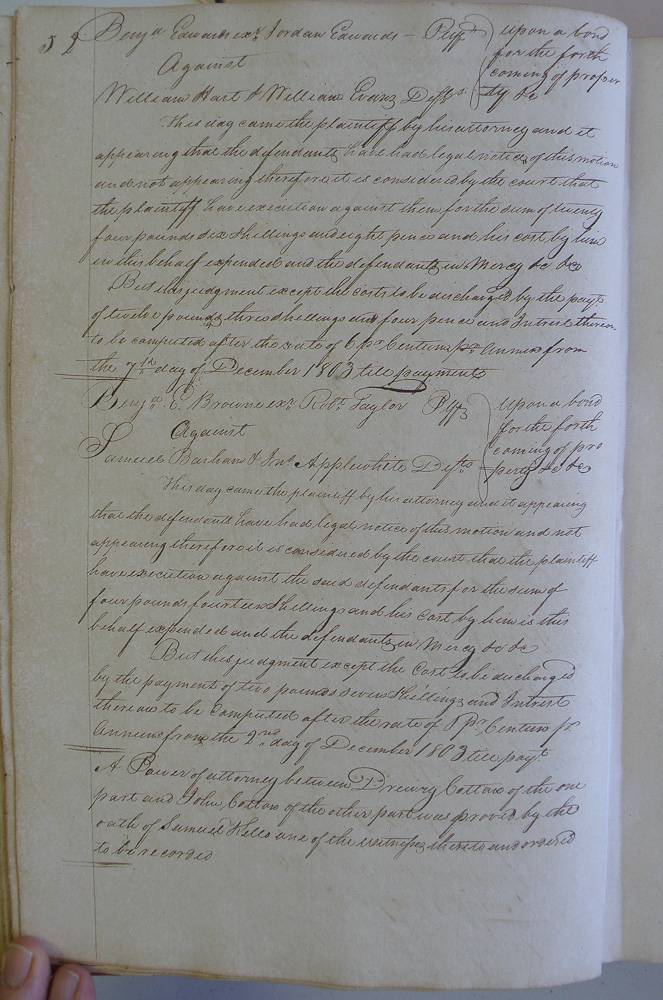 52 Benja Edwards exr Jordan Edwards – Plff } upon a bond
for the forth
Against coming of proper
William Hart & William Evans Defts ty &c
This day came the plaintiff by his attorney and it
appearing that the defendants have had legal notice of this motion
and not appearing therefore it is considered by the court that
the plaintiff have execution against them for the sum of twenty
four pounds six shillings and eight pence and his cost by him
in this behalf expended and the defendants in Mercy &c &c
But this judgment except the costs to be discharged by the payt
of twelve pounds three shillings and four pence and Intrest thereon
to be computed after the rate of 6 pr Centum pr Annum from
the 7th day of December 1803 till payment
Benja E. Browne exr Robt Taylor Plff } Upon a bond
for the forth
Against coming of pro
Samuel Barham & Jno Applewhite Defts perty &c &c
This day came the plaintiff by his attorney and it appearing
that the defendants have had legal notice of this motion and not
appearing therefore it is considered by the court that the plaintiff
have execution against the said defendants for the sum of
four pounds fourteen shillings and his cost by him is this
behalf expended and the defendants in Mercy &c &c
But this judgment except the Cost to be discharged
by the payment of two pounds seven Shillings and Intrest
thereon to be computed after the rate of pr Centum pr
Annum from the 2nd day of December 1803 till payt
A Power of attorney between Drewry Cotton of the one
part and John Cotton of the other part was proved by the
oath of Samuel one of the witnesses thereto and ordered
to be recorded